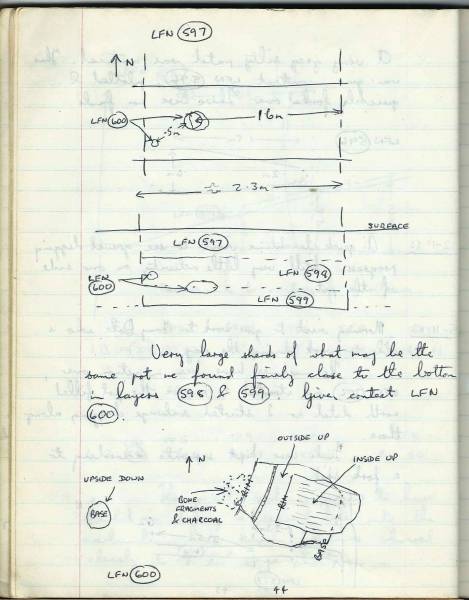 LFN 597
N
LFN 600
.5m
1.6m
≈ 2.3m
SURFACE
LFN 597
LFN 598
LFN 600
LFN 599
Very large sherds of what may be the
same pot were found fairly close to the bottom
in layers 598 & 599. Given context LFN
600.
N
OUTSIDE UP
INSIDE UP
UPSIDE DOWN
BASE
BONE
FRAGMENTS
& CHARCOAL
RIM
RIM
BASE
LFN 600
44